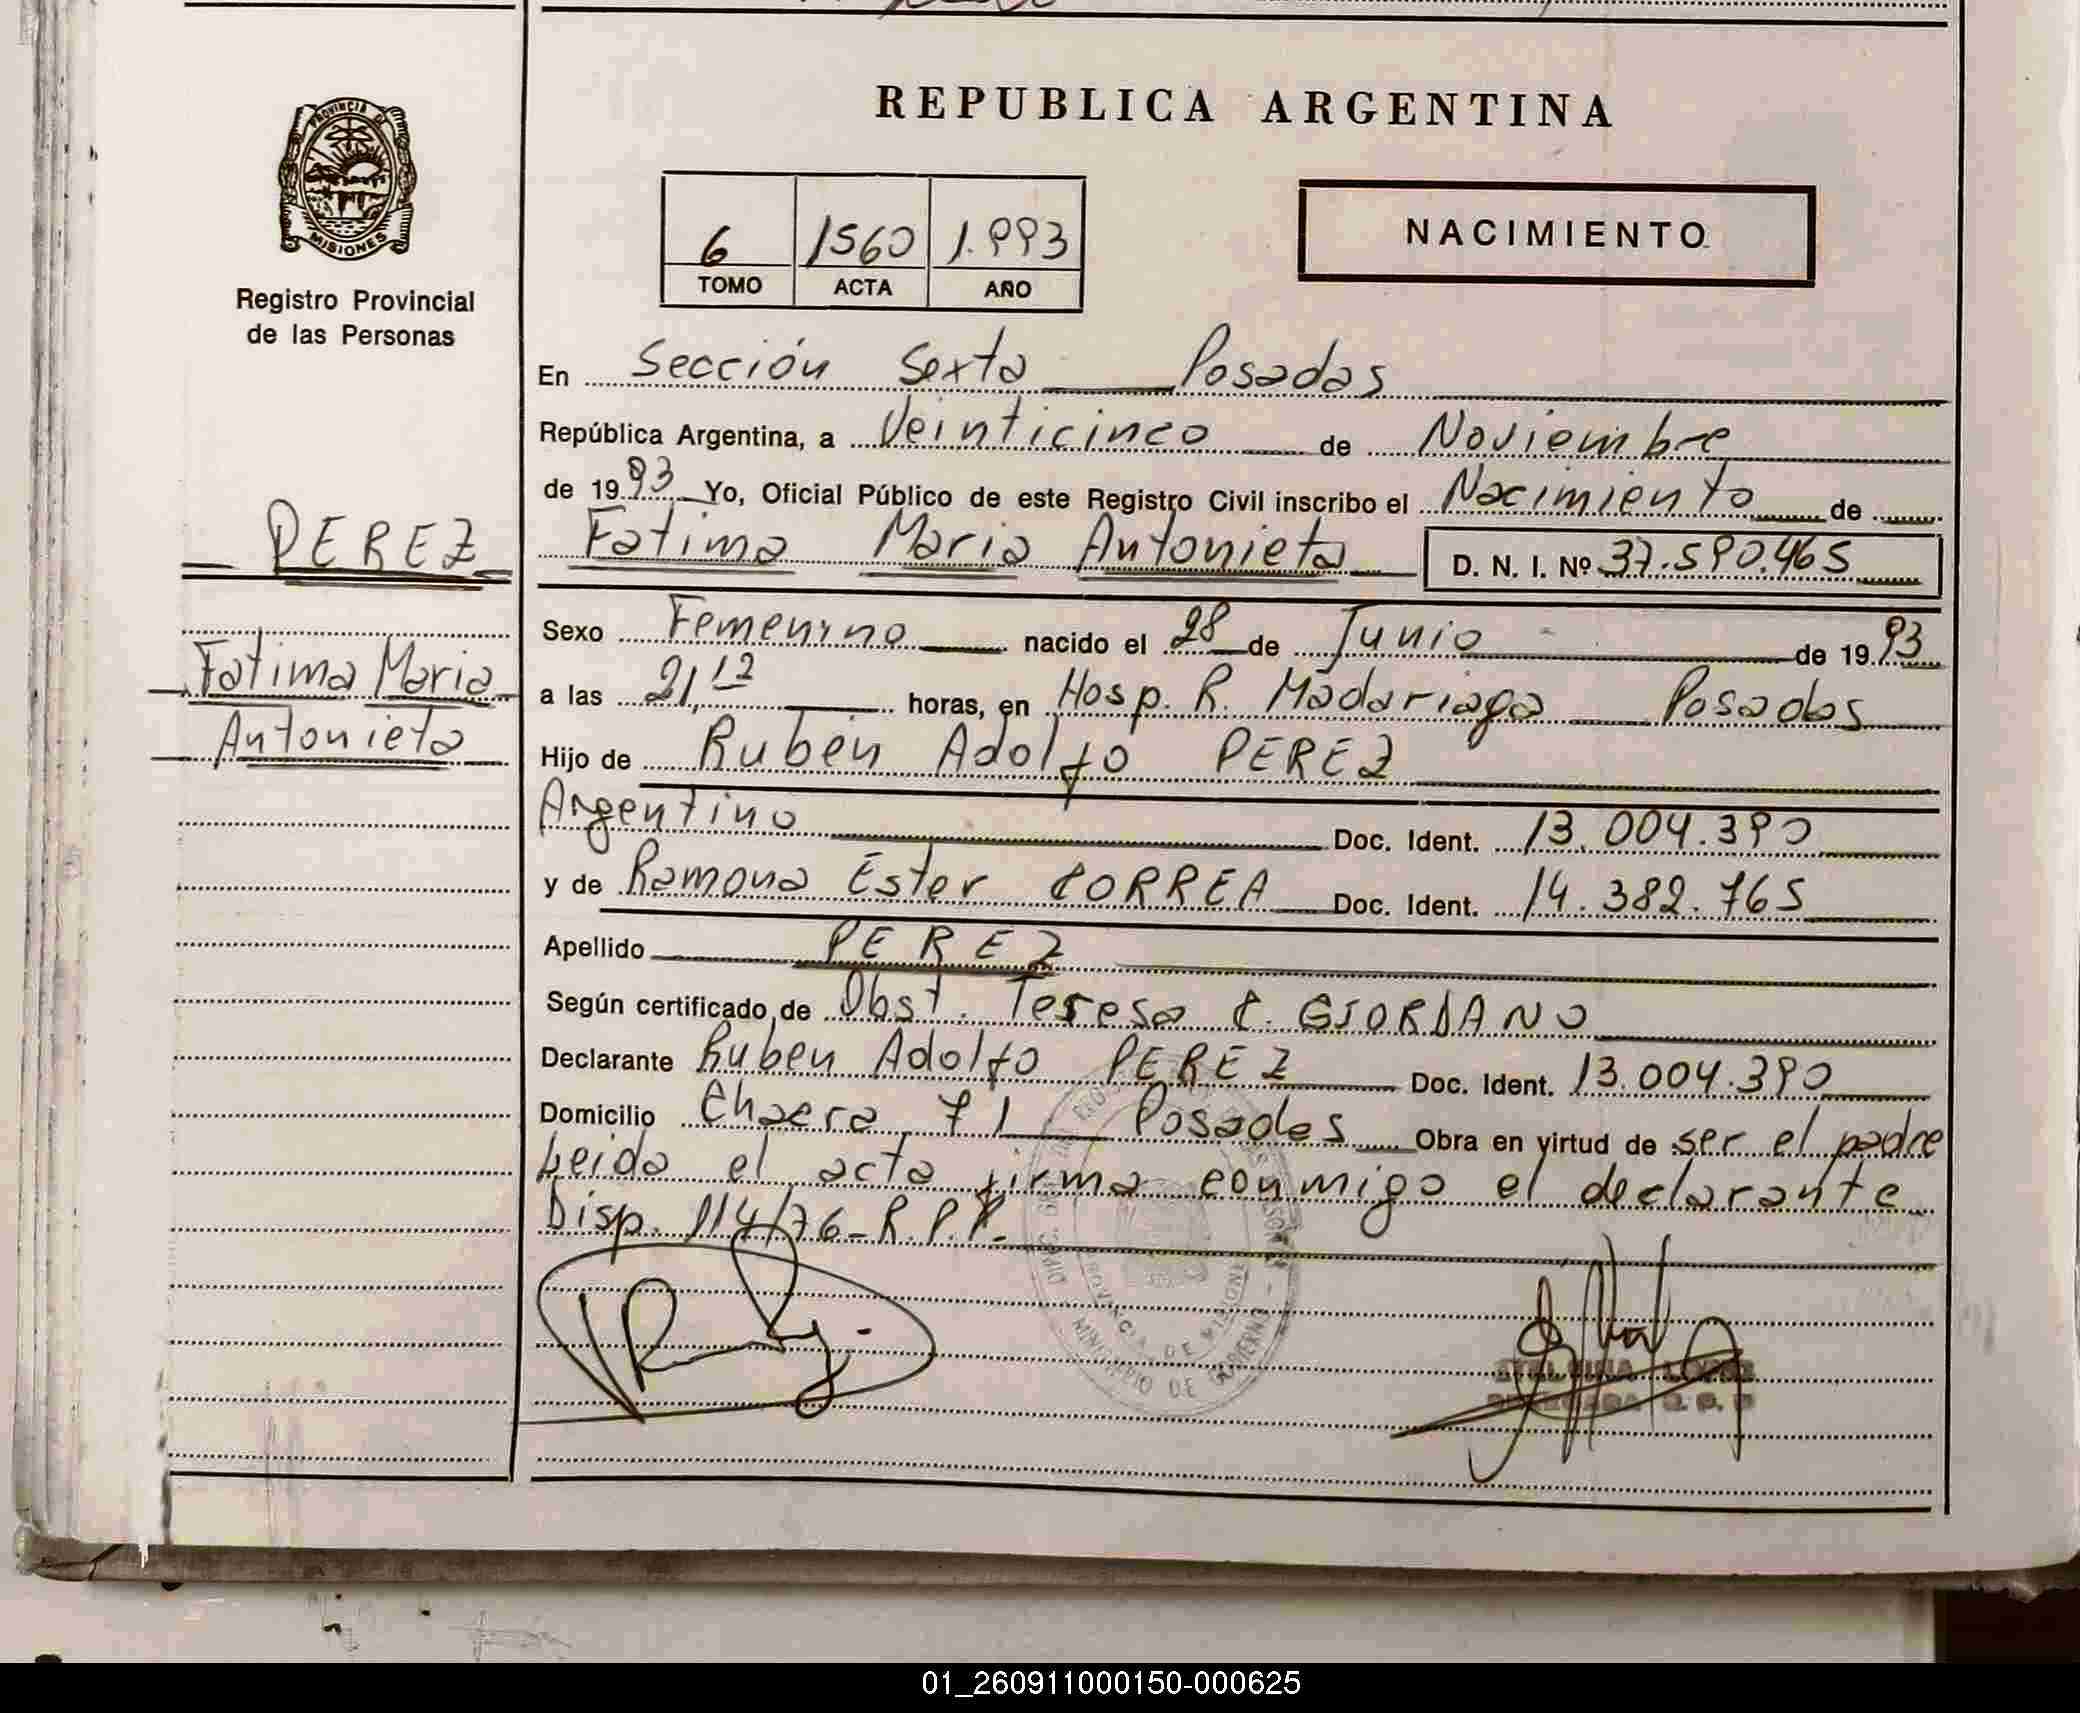 REPUBLICA ARGENTINA
PROVINCIA DE
MISIONES
Registro Provincial
de las Personas
6 1560 1.993
TOMO ACTA AÑO
NACIMIENTO
En Sección Sexta Posadas
República Argentina, a Veinticinco de Noviembre
de 1993 Yo, Oficial Público de este Registro Civil inscribo el Nacimiento de
PEREZ
Fatima Maria Antonieta D. N. I. Nº 37.590.465
Sexo Femenino nacido el 28 de Junio de 1993
Fatima Maria
Antonieta
a las 21,12 horas, en Hosp. R. Madariaga Posadas
Hijo de Ruben Adolfo PEREZ
Argentino Doc. Ident. 13.004.390
y de Ramona Ester CORREA Doc. Ident. 14.382.765
Apellido PEREZ
Según certificado de Obst. Teresa C. GIORDANO
Declarante Ruben Adolfo PEREZ Doc. Ident. 13.004.390
Domicilio Chacra 71 Posadas Obra en virtud de ser el padre
Leida el acta firma conmigo el declarante
Disp. 114/76-R.P.P.
PROVINCIA DE MISIONES
MINISTERIO DE GOBIERNO
01_260911000150-000625